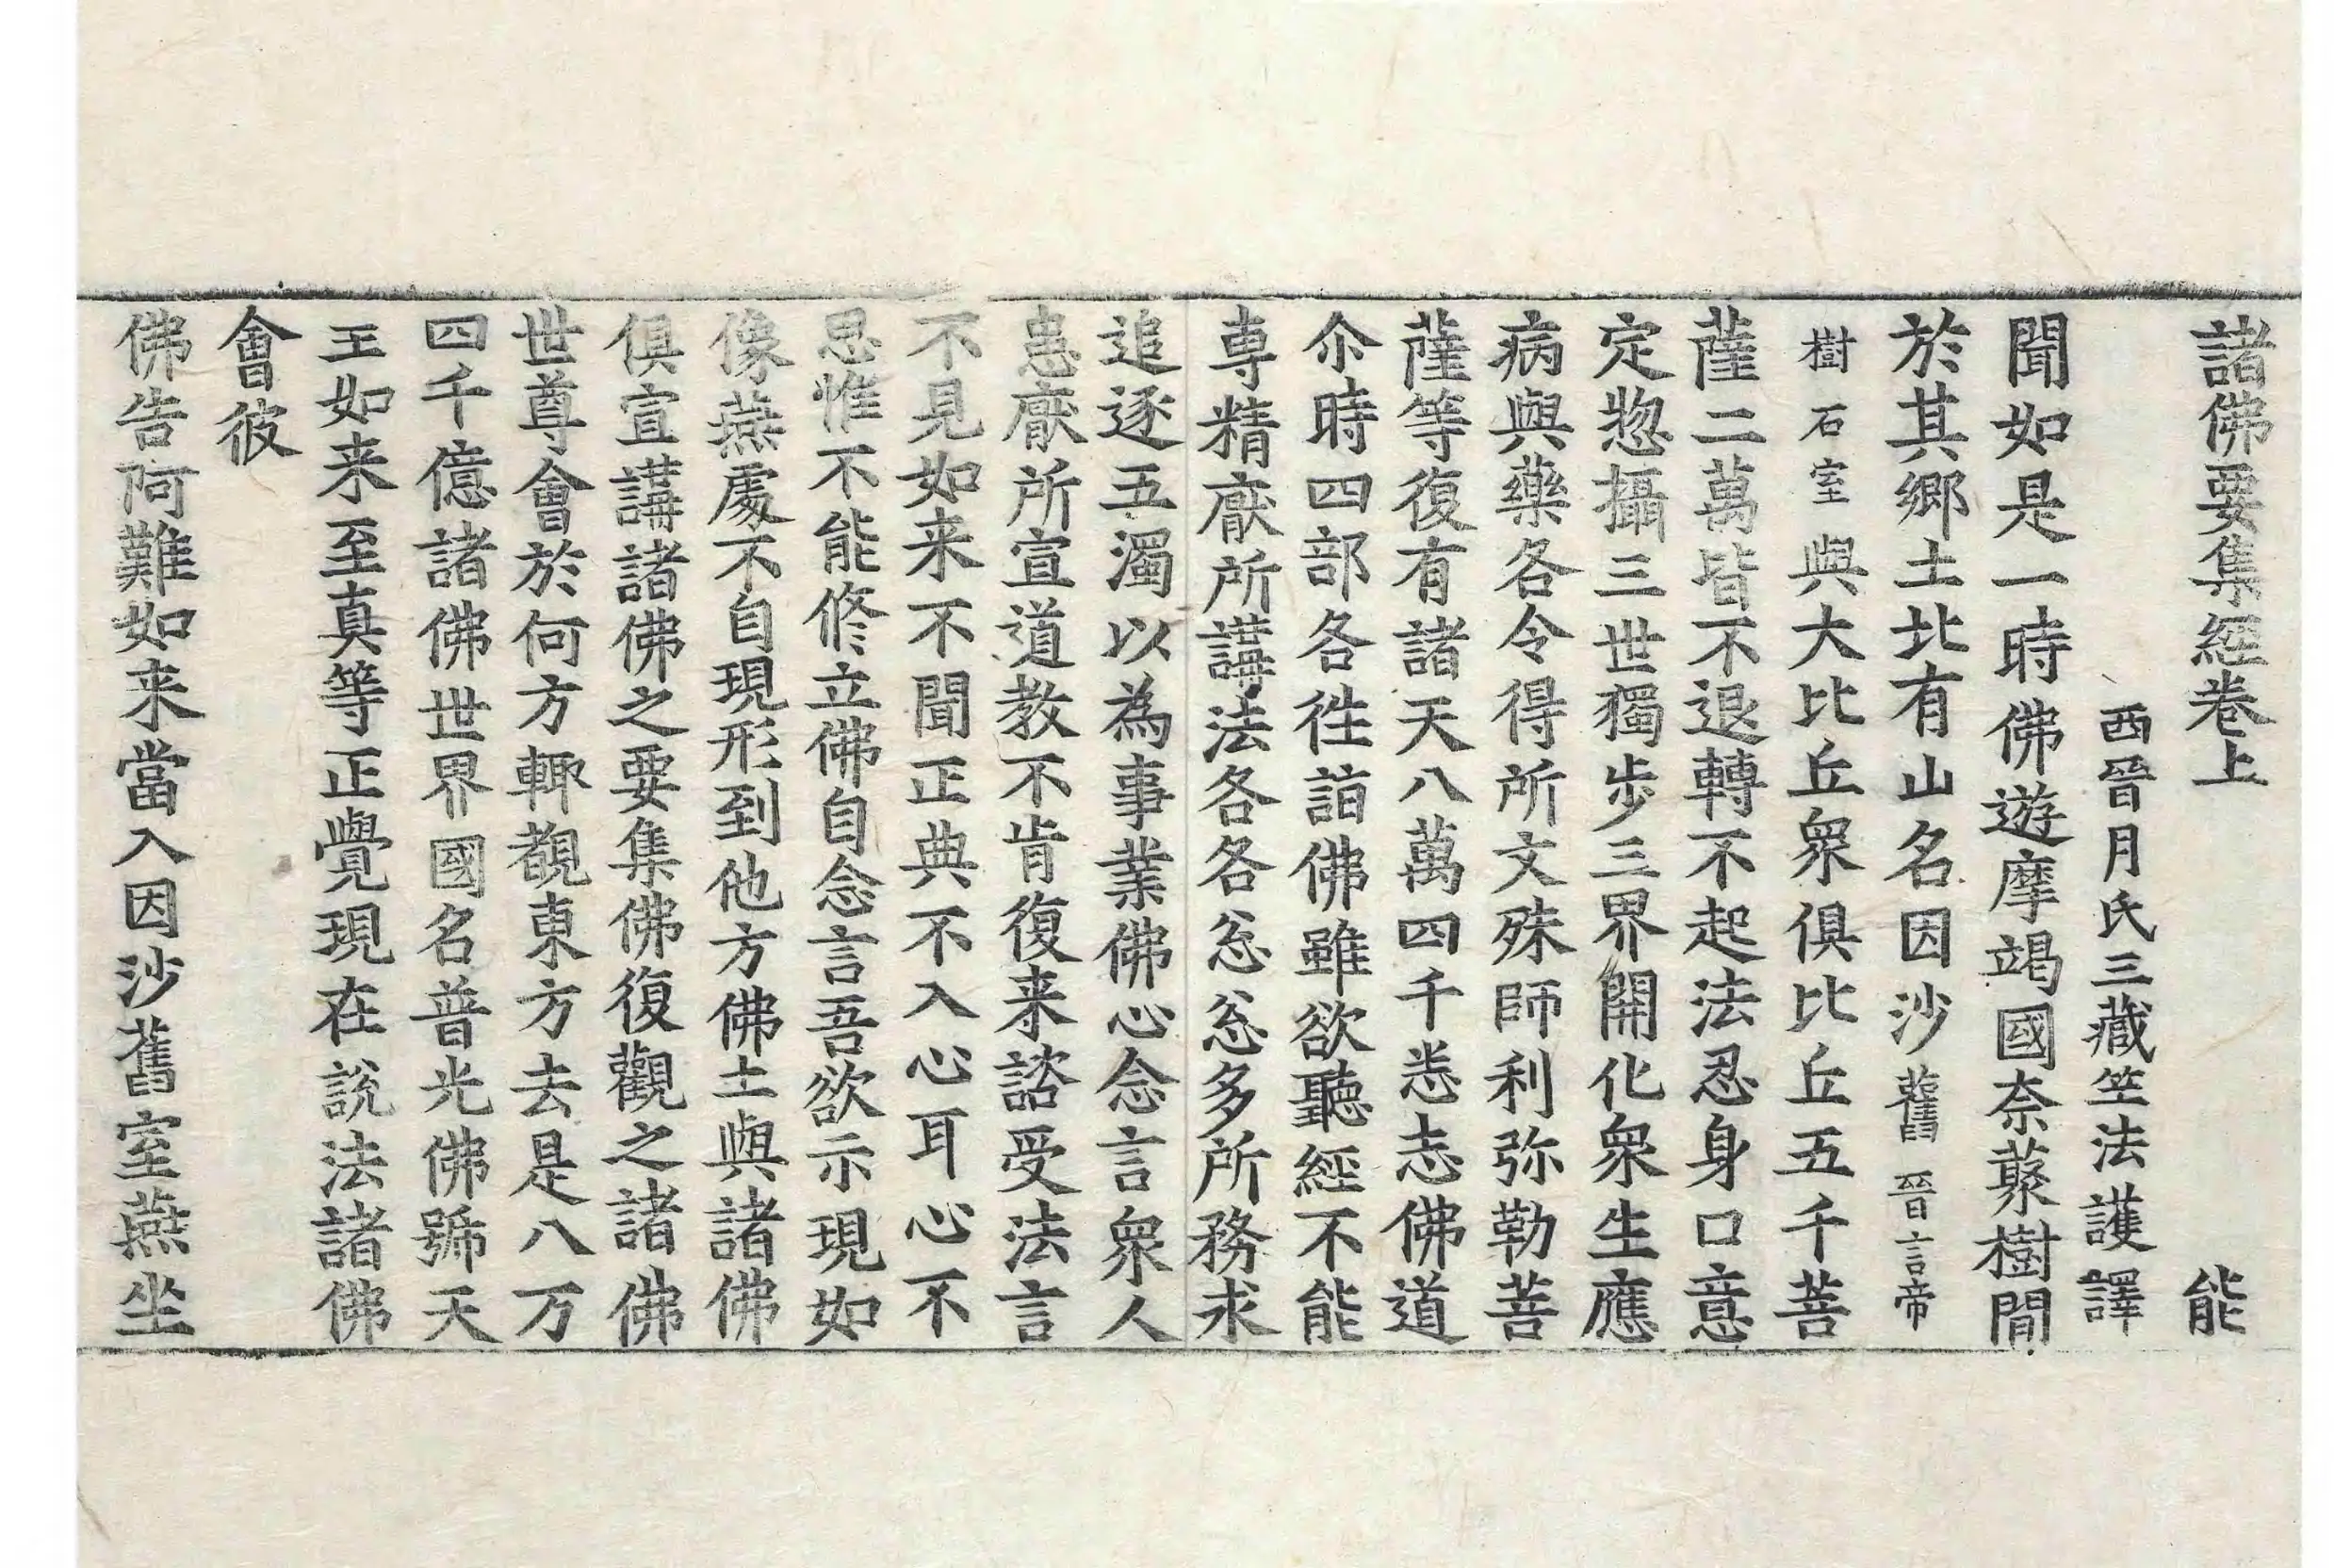 諸佛要集經卷上 能
西晉月氏三藏竺法護譯
聞如是一時佛遊摩竭國奈藂樹間
於其鄉土北有山名因沙舊晉言帝
樹石室與大比丘衆俱比丘五千菩
薩二萬皆不退轉不起法忍身口意
定惣攝三世獨步三界開化衆生應
病與藥各令得所文殊師利弥勒菩
薩等復有諸天八萬四千悉志佛道
尒時四部各徃詣佛雖欲聽經不能
専精厭所講法各各忩忩多所務求
追逐五濁以為事業佛心念言衆人
患厭所宣道教不肯復来諮受法言
不見如来不聞正典不入心耳心不
思惟不能修立佛自念言吾欲示現如
像燕處不自現形到他方佛土與諸佛
俱宣講諸佛之要集佛復觀之諸佛
世尊會於何方輙覩東方去是八万
四千億諸佛世界國名普光佛號天
王如来至真等正覺現在說法諸佛
會彼
佛告阿難如来當入因沙舊室燕坐